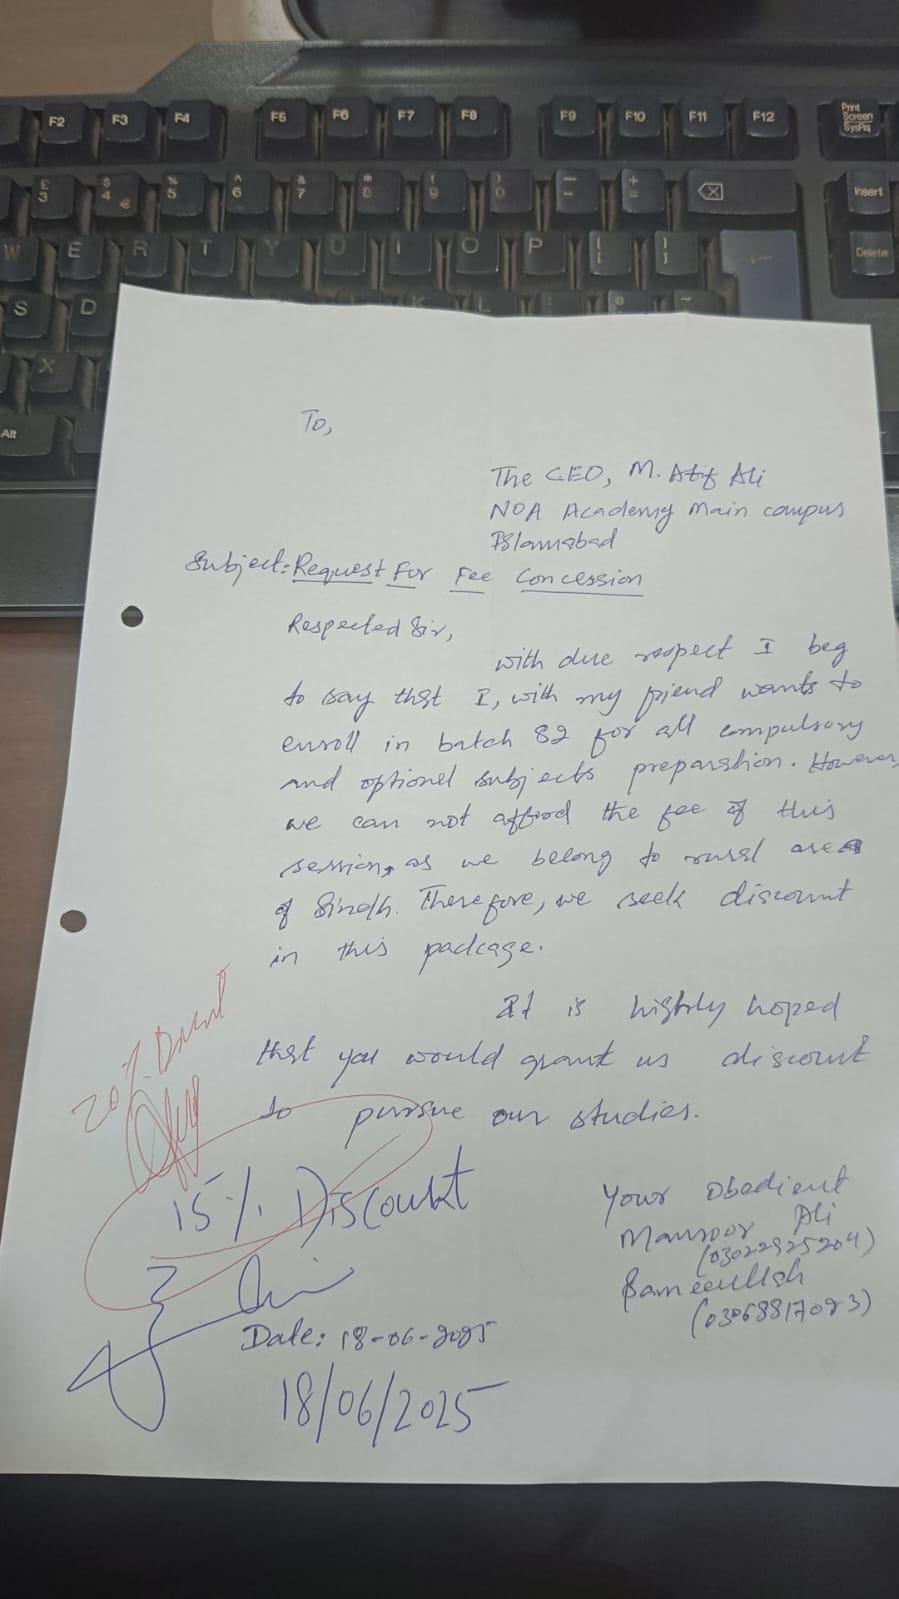 To,
The CEO, M. Atif Ali
NOA Academy Main campus
Islamabad
Subject: Request For Fee Concession
Respected Sir,
with due respect I beg
to say that I, with my friend wants to
enroll in batch 82 for all compulsory
and optional subjects preparation. However,
we can not afford the fee of this
session, as we belong to rural area
of Sindh. Therefore, we seek discount
in this package.
It is highly hoped
that you would grant us discount
to pursue our studies.
20%
15% Discount
Your Obedient
Mansoor Ali
(03022925204)
Sameeullah
(03068817093)
Date: 18-06-2025
18/06/2025
F2 F3 F4 F5 F6 F7 F8 F9 F10 F11 F12 Print Screen SysRq
E 3 $ 4 € % 5 ^ 6 & 7 * 8 ( 9 ) 0 - + = Insert
W E R T Y U I O P [ ] Delete
S D K L
X
Alt